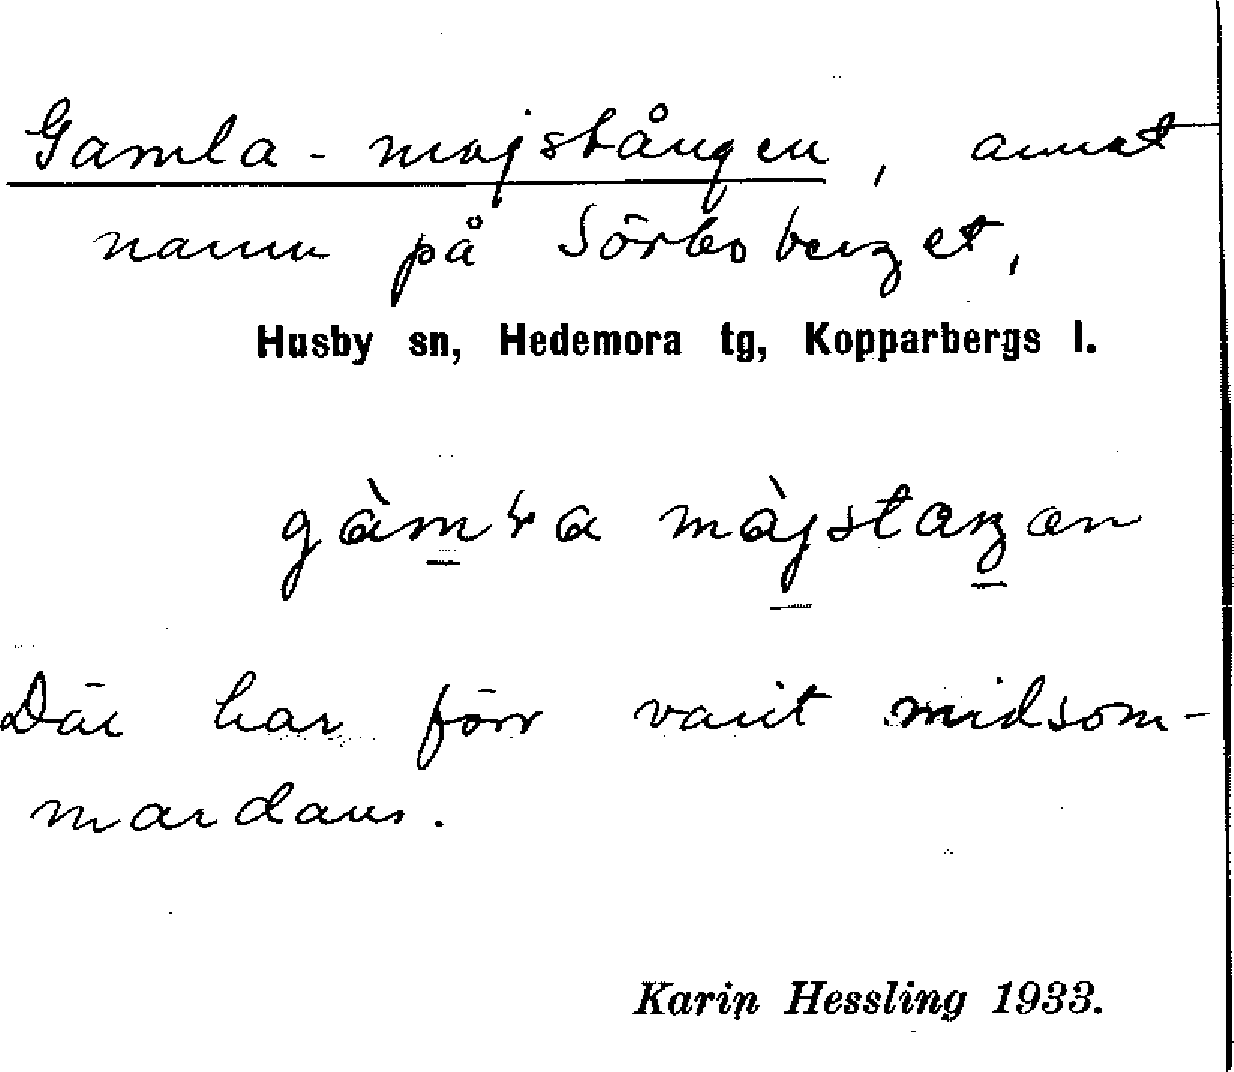 Gamla-majstången, annat
namn på Sörboberget,
Husby sn, Hedemora tg, Kopparbergs l.
gàmɽa màjstaŋən
Där har förr varit midsom-
mardans.
Karin Hessling 1933.